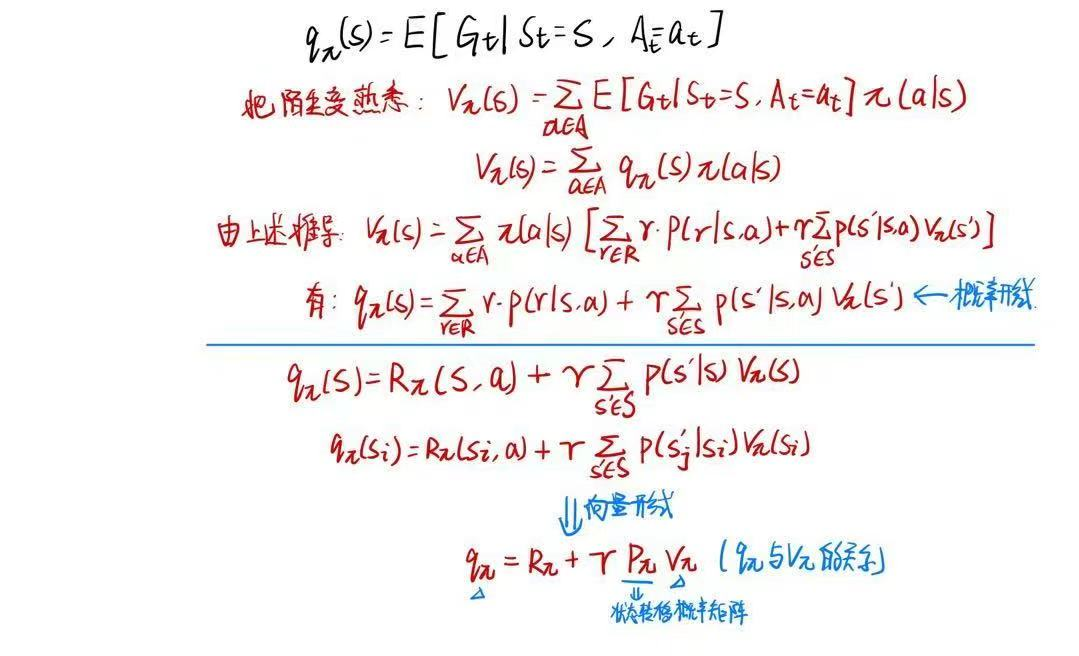 qπ(s) = E[Gt | St=s, At=at]
把陌生变熟悉: Vπ(s) = ∑a∈A E[Gt | St=s, At=at] π(a|s)
Vπ(s) = ∑a∈A qπ(s) π(a|s)
由上述推导: Vπ(s) = ∑a∈A π(a|s) [∑r∈R r·p(r|s,a) + γ∑s'∈S p(s'|s,a) Vπ(s')]
有: qπ(s) = ∑r∈R r·p(r|s,a) + γ∑s'∈S p(s'|s,a) Vπ(s') ← 概率形式
qπ(s) = Rπ(s,a) + γ∑s'∈S p(s'|s) Vπ(s)
qπ(si) = Rπ(si,a) + γ∑s'∈S p(s'j|si) Vπ(si)
⇓ 向量形式
qπ = Rπ + γ Pπ Vπ (qπ与Vπ的关系)
⇓
状态转移概率矩阵